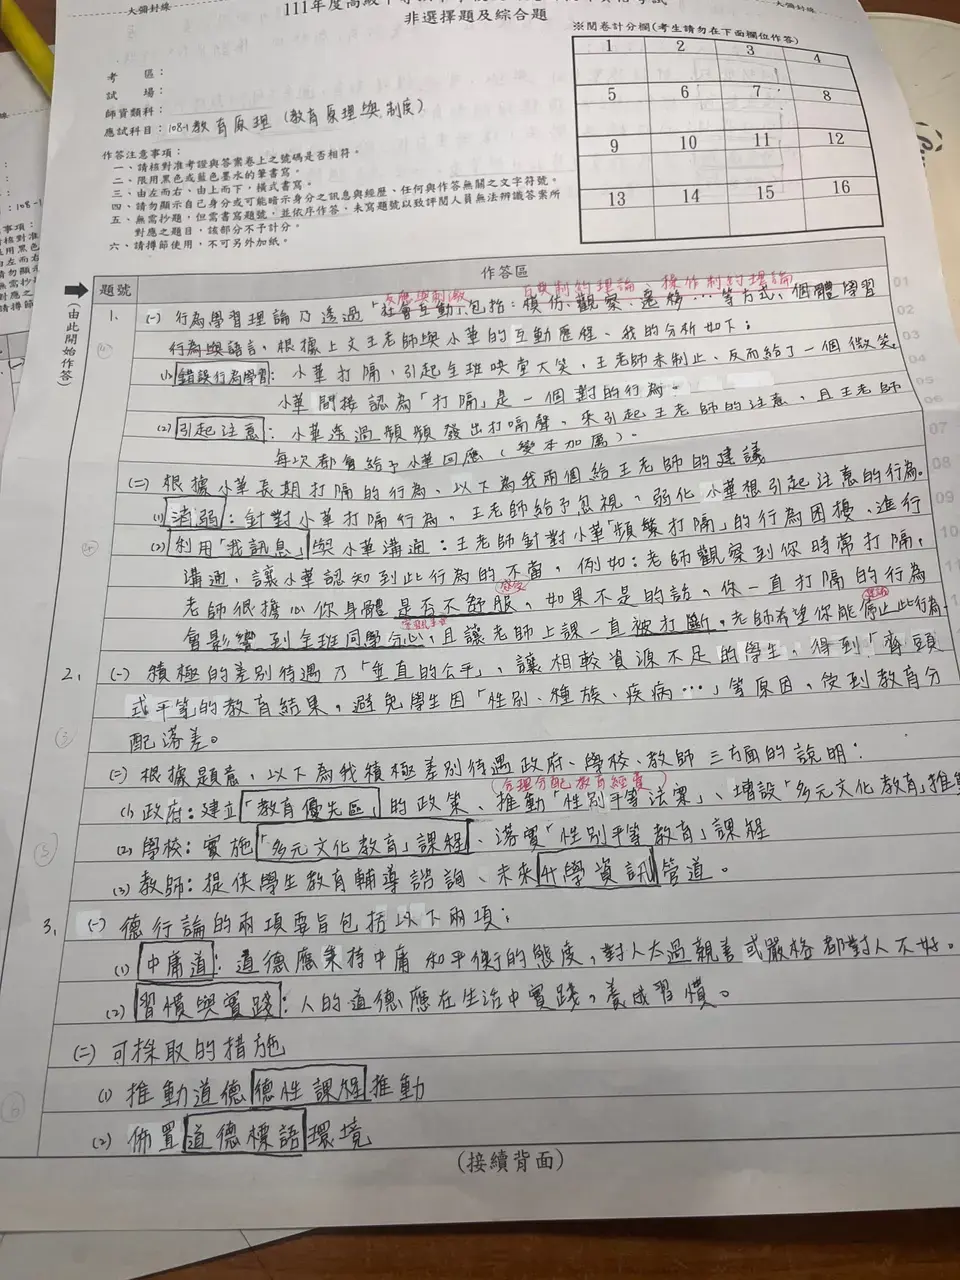 大彌封線
大彌封線
非選擇題及綜合題
※閱卷計分欄(考生請勿在下面欄位作答)
1 2 3 4
5 6 7 8
9 10 11 12
13 14 15 16
考 區:
試 場:
師資類科:
應試科目:108-1教育原理(教育原理與制度)
作答注意事項:
一、請核對准考證與答案卷上之號碼是否相符。
二、限用黑色或藍色墨水的筆書寫。
三、由左而右、由上而下,橫式書寫。
四、請勿顯示自己身分或可能暗示身分之訊息與經歷、任何與作答無關之文字符號。
五、無需抄題,但需書寫題號,並依序作答,未寫題號以致評閱人員無法辨識答案所
對應之題目,該部分不予計分。
六、請撙節使用,不可另外加紙。
(由此開始作答)
題號 作答區
反應與刺激 古典制約理論、操作制約理論
1. (一) 行為學習理論乃透過「社會互動」包括:模仿、觀察、遷移…等方式、個體學習
行為與語言。根據上文王老師與小華的互動歷程、我的分析如下:
(1) 錯誤行為學習:小華打嗝,引起全班哄堂大笑,王老師未制止、反而給了一個微笑,
小華間接認為「打嗝」是一個對的行為。
(2) 引起注意:小華透過頻頻發出打嗝聲,來引起王老師的注意,且王老師
每次都會給予小華回應(變本加厲)。
(二) 根據小華長期打嗝的行為、以下為我兩個給王老師的建議
(1) 消弱:針對小華打嗝行為、王老師給予忽視,弱化小華想引起注意的行為。
(2) 利用「我訊息」與小華溝通:王老師針對小華「頻繁打嗝」的行為困擾、進行
溝通,讓小華認知到此行為的不當,例如:老師觀察到你時常打嗝,
感受
老師很擔心你身體是否不舒服,如果不是的話,你一直打嗝的行為
會影響到全班同學分心,且讓老師上課一直被打斷,老師希望你能停止此行為。
2. (一) 積極的差別待遇乃「垂直的公平」、讓相較資源不足的學生,得到「齊頭
式平等」的教育結果,避免學生因「性別、種族、疾病…」等原因,使到教育分
配落差。
(二) 根據題意,以下為我積極差別待遇政府、學校、教師三方面的說明:
(合理分配教育經費)
(1) 政府:建立「教育優先區」的政策、推動「性別平等法案」、增設「多元文化教育」推動
(2) 學校:實施「多元文化教育」課程、落實「性別平等教育」課程
(3) 教師:提供學生教育輔導諮詢、未來升學資訊管道。
3. (一) 德行論的兩項要旨包括以下兩項:
(1) 中庸道:道德應秉持中庸和平衡的態度,對人太過親善或嚴格都對人不好。
(2) 習慣與實踐:人的道德應在生活中實踐,養成習慣。
(二) 可採取的措施
(1) 推動道德德性課程推動
(2) 佈置道德標語環境
(接續背面)
01
02
03
04
05
06
07
08
09
10
11
12